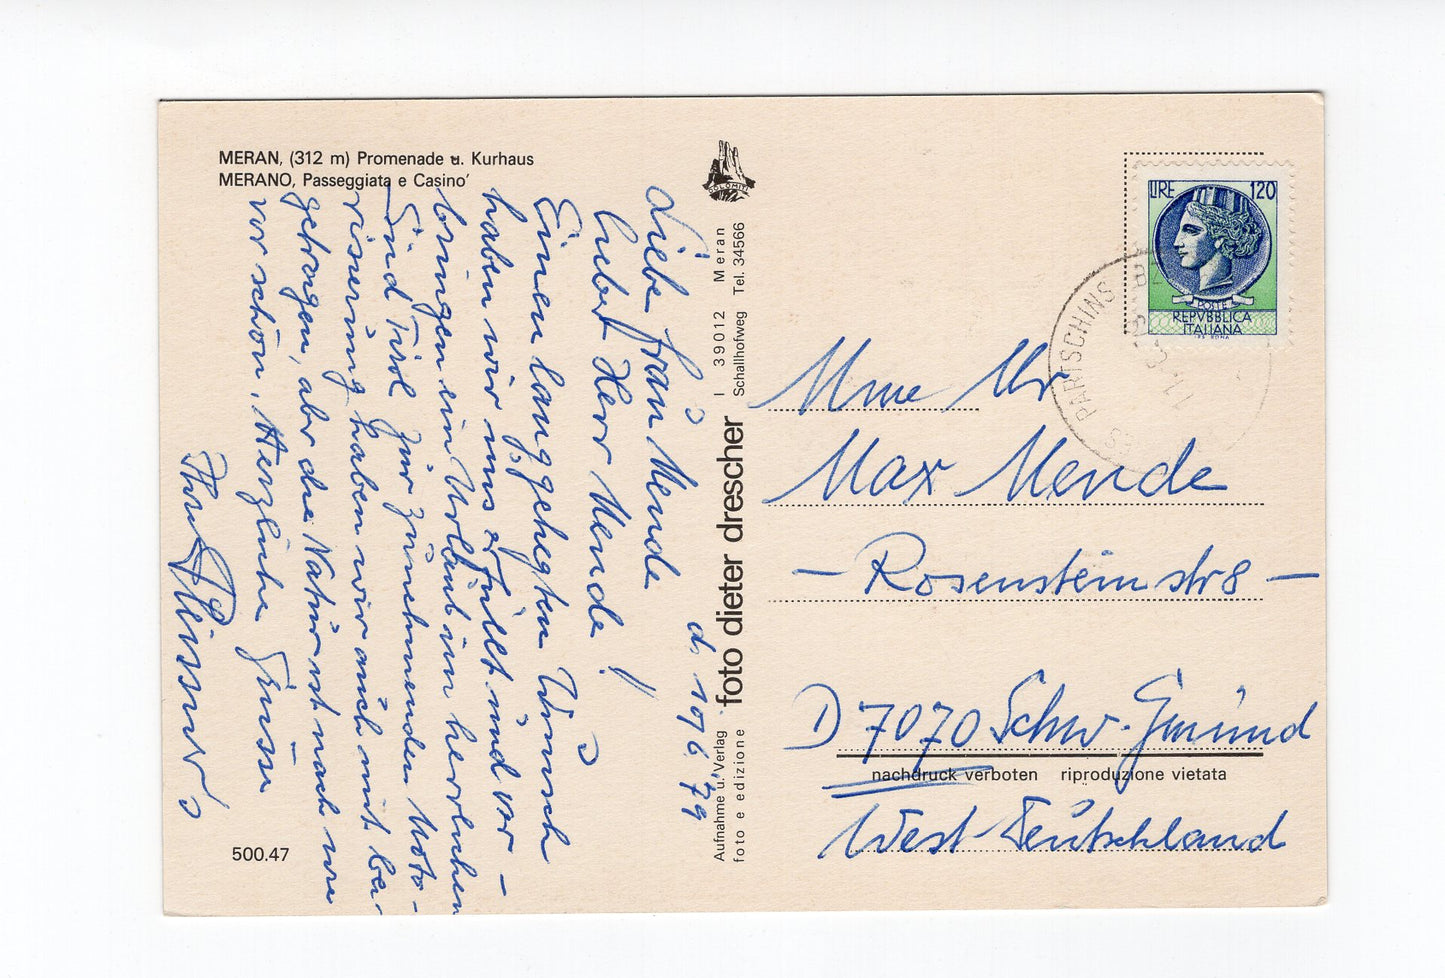 MERAN, (312 m) Promenade u. Kurhaus
MERANO, Passeggiata e Casino'
d. 10.6.79
Liebe Frau Mende
lieber Herr Mende!
Einen langgehegten Wunsch
haben wir uns erfüllt und ver-
bringen ein Urlaub im herrlichen
Süd Tirol zur zunehmenden Moto-
risierung haben wir auch mit bei
getragen, aber die Natur ist nach wie
vor schön. Herzliche Grüsse
Ihre
500.47
DOLOMITI
Aufnahme u. Verlag
foto e edizione
foto dieter drescher
I 39012 Meran
Schallhofweg Tel. 34566
LIRE 120
POSTE
REPVBBLICA
ITALIANA
I.P.S. ROMA
PARTSCHINS
Mme Mr
Max Mende
- Rosensteinstr 8 -
D 7070 Schw. Gmünd
nachdruck verboten riproduzione vietata
West Deutschland